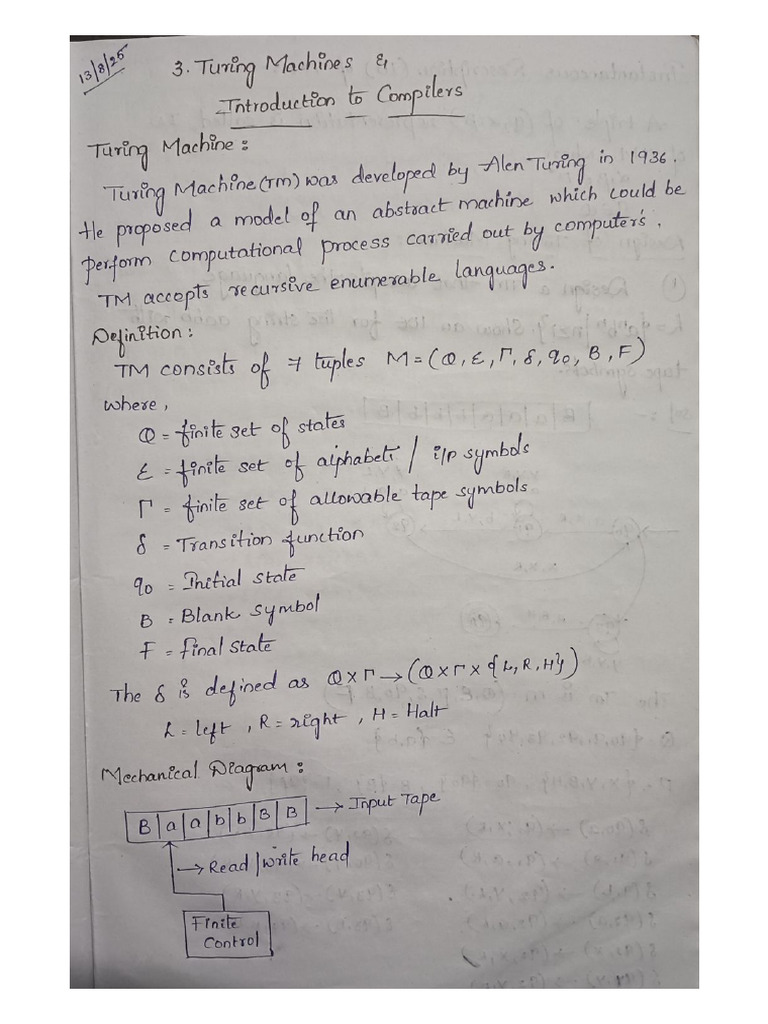 13/8/25
3. Turing Machines &
Introduction to Compilers
Turing Machine:
Turing Machine (TM) was developed by Alen Turing in 1936.
He proposed a model of an abstract machine which could be
perform computational process carried out by computer's.
TM accepts recursive enumerable languages.
Definition:
TM consists of 7 tuples M = (Q, Σ, Γ, δ, q0, B, F)
where,
Q = finite set of states
Σ = finite set of alphabets / i/p symbols
Γ = finite set of allowable tape symbols
δ = Transition function
q0 = Initial state
B = Blank symbol
F = final state
The δ is defined as Q x Γ → (Q x Γ x {L, R, H})
L = left , R = right , H = Halt
Mechanical Diagram:
B a a b b B B → Input Tape
→ Read/write head
Finite
Control